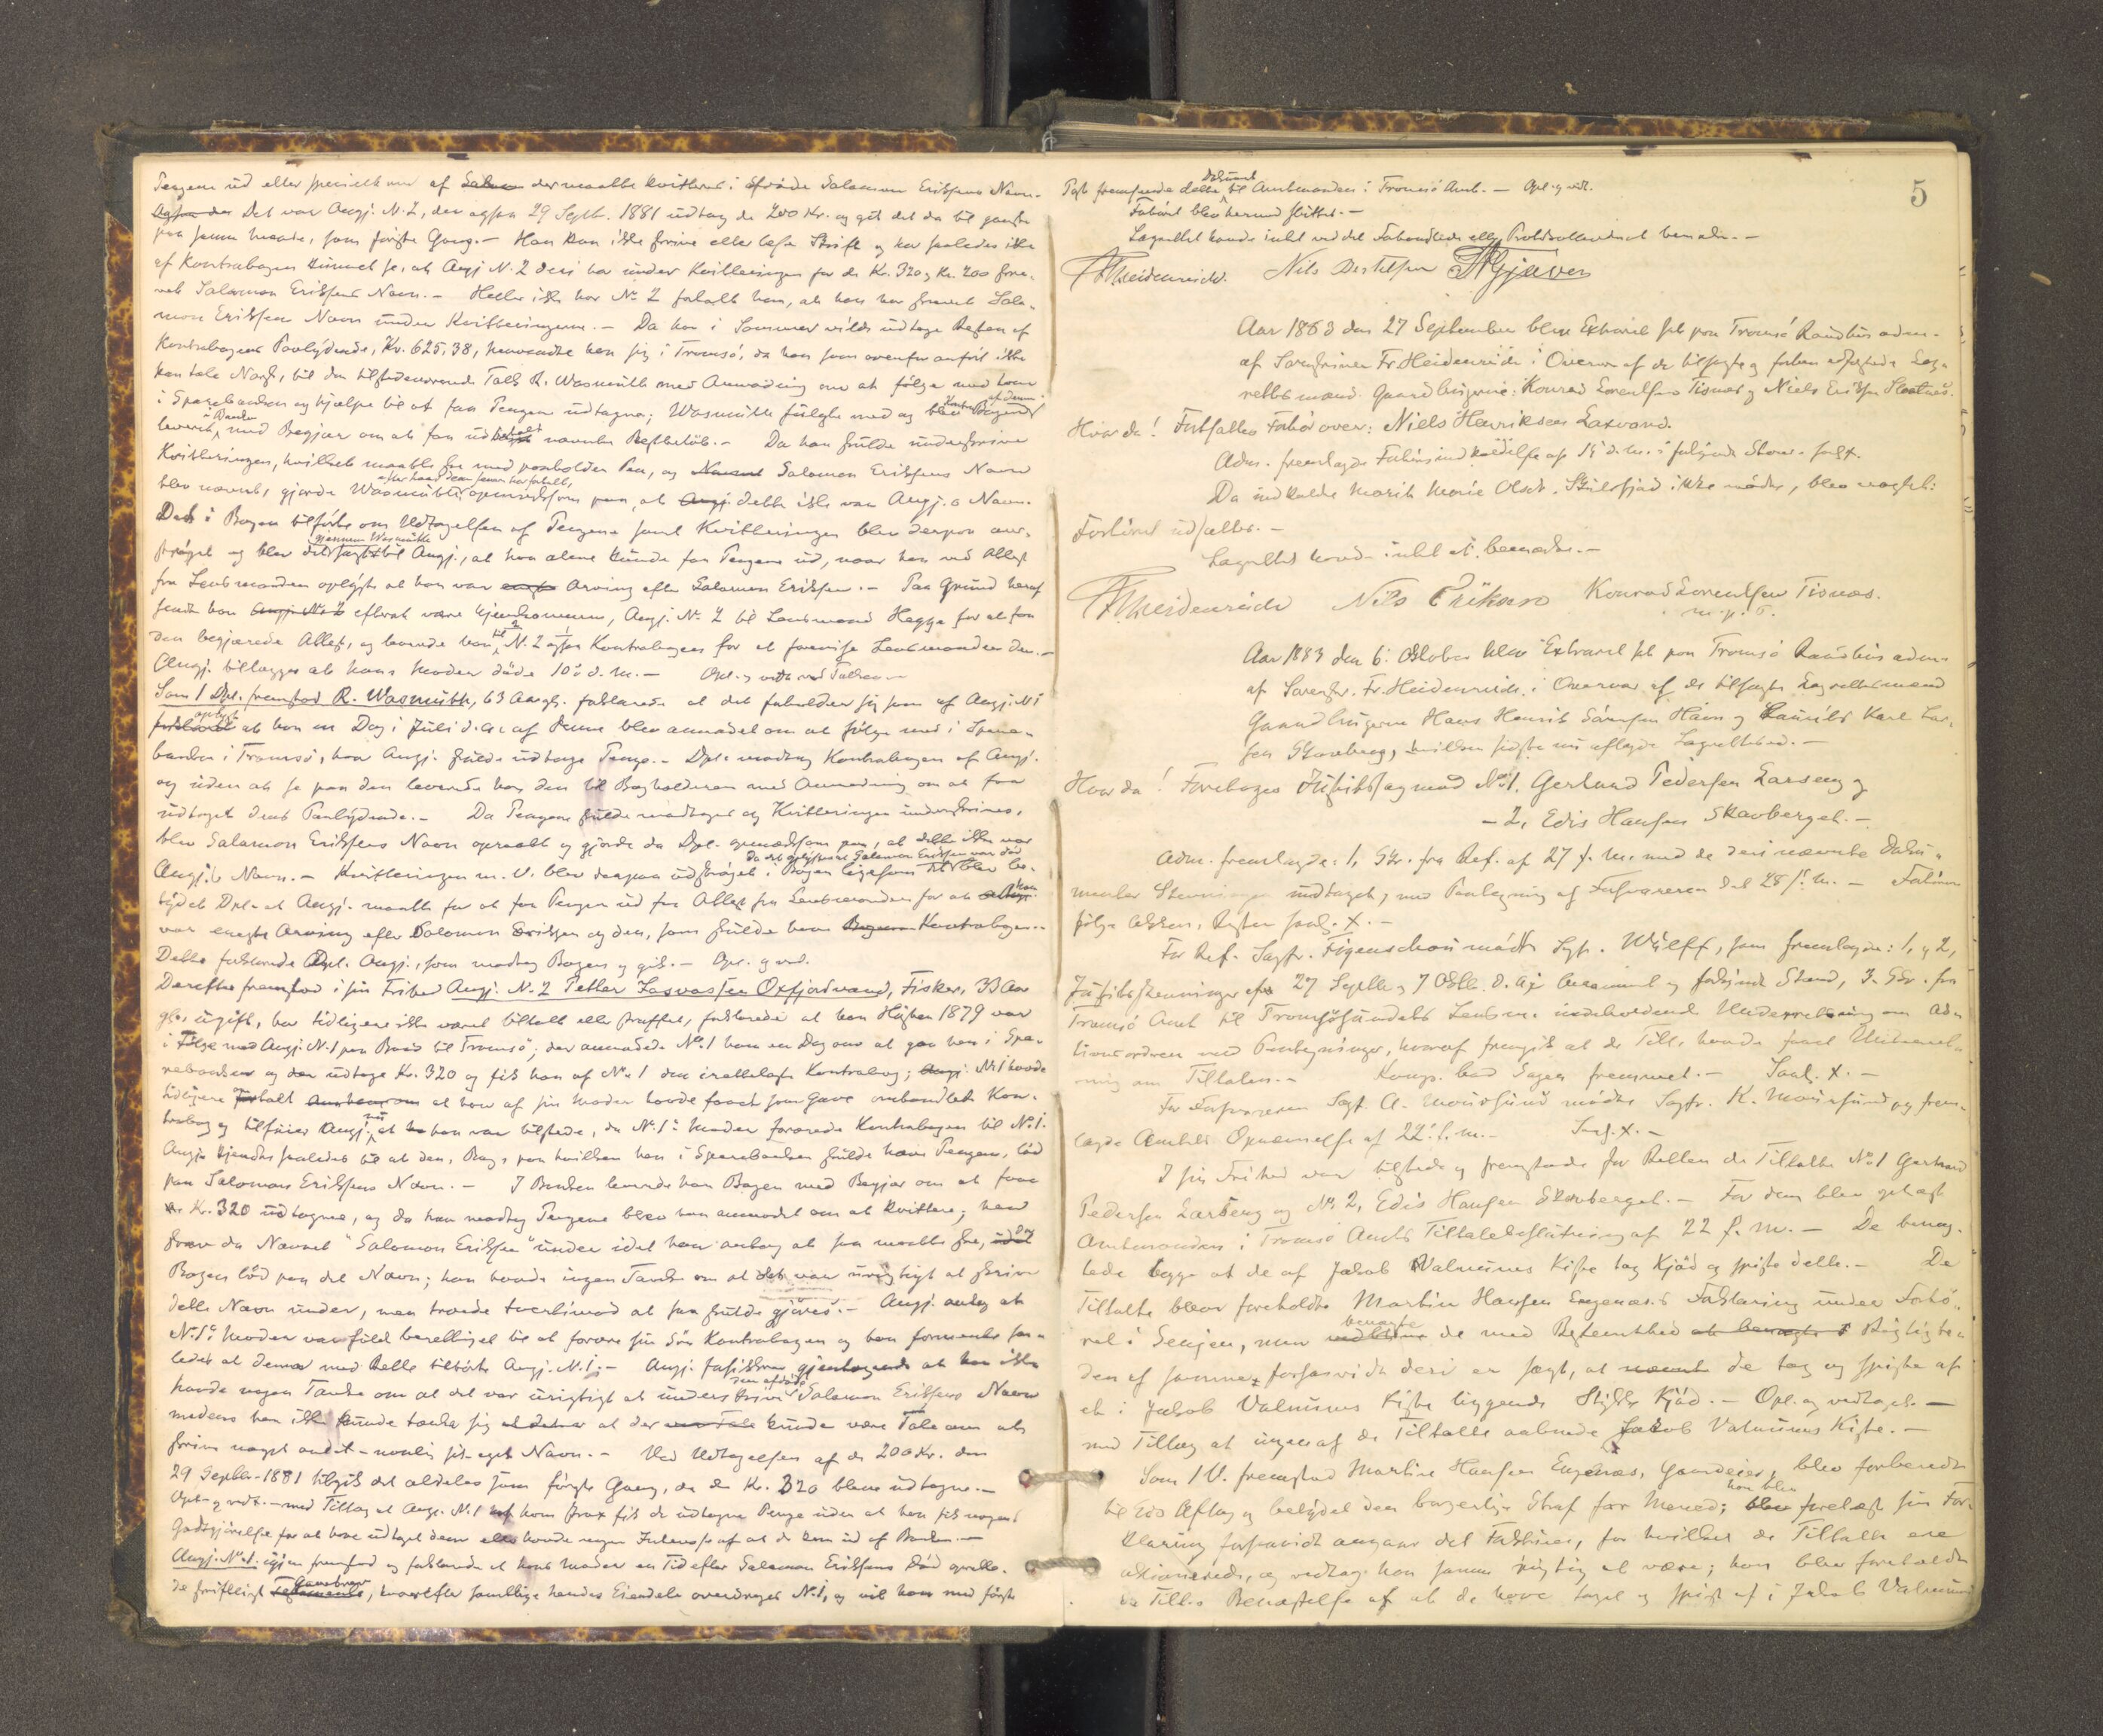 Pengene ud eller specielt om af der maatte kvitteres i afdöde Salamon Eriksens Navn.
Det var Angj. N. 2, der ogsaa 29 Septb. 1881 udtog de 200 Kr. og gik det da til ganske
paa samme Maade, som förste Gang. – Han kan ikke skrive eller læse Skrift og har saaledes ikke
af Kontrabogen kunnet se, at Angj N. 2 deri har under Kvitteringen for de Kr. 320 og Kr. 200 skre-
vet Salamon Eriksens Navn. – Heller ikke har No 2 fortalt ham, at han har skrevet Sala-
mon Eriksen Navn under Kvitteringerne. – Da han i Sommer vilde udtage Resten af
Kontrabogens Paalydende, Kr. 625,38, henvendte han sig i Tromsö, da han som ovenfor anfört ikke
kan tale Norsk, til den tilstedeværende Tolk R. Wasmuth med Anmodning om at fölge med ham
i Sparebanken og hjælpe til at faa Pengene udtagne; Wasmuth fulgte med og blev Kontrabogen af denne
leveret i Banken med Begjær om at faa udbetalt nævnte Restbelöb. – Da han skulde underskrive
Kvitteringen, hvilket maatte ske med paaholden Pen, og Salamon Eriksens Navn
blev nævnt, gjorde Wasmuth, efter hvad denne senere har fortalt, opmærksom paa, at dette ikke var Angj.s Navn.
Det i Bogen tilförte om Udtagelsen af Pengene samt Kvitteringen blev derpaa over-
ströget og blev det gjennem Wasmuth sagt til Angj., at han alene kunde faa Pengene ud, naar han ved Attest
fra Lensmanden oplyste at han var Arving efter Salamon Eriksen. – Paa Grund heraf
sendte han efterat være hjemkommen, Angj. No 2 til Lensmand Hegge for at faa
den begjærede Attest, og leverede han til N. 2 ogsaa Kontrabogen for at forevise Lensmanden den. –
Angj. tillægger at hans Moder döde 10de d. M. – Opl. og vedt. ved Tolken –
Som 1 Dpl. fremstod R. Wasmuth, 63 Aar gl. forklarede at det forholder sig som af Angj. N 1
oplyst at han en Dag i Juli d. A. af denne blev anmodet om at fölge med i Spare-
banken i Tromsö, hvor Angj. skulde udtage Penge. – Dpl. modtog Kontrabogen af Angj.
og uden at se paa den leverede han den til Bogholderen med Anmodning om at faa
udtaget dens Paalydende. – Da Pengene skulde modtages og Kvitteringen underskrives,
blev Salamon Eriksens Navn opraabt og gjorde da Dpl. opmærksom paa, at dette ikke var
Angj.s Navn. – Kvitteringen m. V. blev derpaa udströget i Bogen ligesom Da det oplystes at Salamon Eriksen var död blev be-
tydet Dpl. at Angj. maatte for at faa Pengene ud faa Attest fra Lensmanden for at han
var eneste Arving efter Salamon Eriksen og den, som skulde have Kontrabogen. –
Dette forklarede Dpl. Angj., som modtog Bogen og gik. – Opl. og ved.
Derefter fremstod i sin Frihed Angj. N. 2 Petter Oxfjordvand, Fisker, 33 Aar
gl., ugift, har tidligere ikke været tiltalt eller straffet, forklarede at han Hösten 1879 var
i Fölge med Angj. N. 1 paa Baad til Tromsö; der anmodede No 1 ham en Dag om at gaa hen i Spa-
rebanken og udtage Kr. 320 og fik han af No 1 den Kontrabog; N. 1 havde
tidligere omtalt at han af sin Moder havde faaet som Gave ombandlet Kon-
trabog og tilföier Angj. nu at han var tilstede, da N. 1s Moder forærede Kontrabogen til No 1.
Angj. kjendte saaledes til at den Bog, paa hvilken han i Sparebanken skulde hæve Pengene, löd
paa Salamon Eriksens Navn. – I Banken leverede han Bogen med Begjær om at faae
Kr. 320 udtagne, og da han modtog Pengene blev han anmodet om at kvittere; han
skrev da Navnet "Salamon Eriksen" under idet han antog at saa maatte ske, da
Bogen löd paa det Navn; han havde ingen Tanke om at det var urigtigt at skrive
dette Navn under, men troede tvertimod at saa skulde gjöres. – Angj. antog at
N. 1s Moder var fuld berettiget til at forære sin Sön Kontrabogen og han formente saa-
ledes at denne med Rette tilhörte Angj. N. 1. – Angj. forsikkrer gjentagende at han ikke
havde nogen Tanke om at det var urigtigt at underskrive den afdöde Salamon Eriksens Navn
medens han ikke kunde tænke sig at der kunde være Tale om at
skrive noget andet – nemlig sit eget Navn. – Ved Udtagelsen af de 200 Kr. den
29 Septbr. 1881 tilgik det aldeles som förste Gang, da de Kr. 320 bleve udtagne. –
Opl. og vedt. – med Tillæg at Angj. N. 1 af ham strax fik de udtagne Penge uden at han fik nogen
Godtgjörelse for at have udtaget dem eller havde nogen Interesse af at de kom ud af Banken. –
Angj. No 1. igjen fremstod og forklarede at hans Moder en Tid efter Salamon Eriksens Död oprette-
de skriftligt Gavebrev, hvorefter samtlige hendes Eiendele overdroges N. 1, og vil han med förste
5
Post fremsende dette Dokument til Amtmanden i Tromsö Amt. – Opl. og vedt.
Forhöret blev hermed sluttet. –
Lagrettet havde intet ved det Forhandlede eller Protokollerede at bemærke. –
Fr Heidenreich. Nils Bertelsen
Aar 1883 den 27 September blev Extraret sat paa Tromsö Raadhus adm.
af Sorenskriver Fr. Heidenreich i Overvær af de tilsagte og forhen edfæstede Lag-
rettesmænd Gaardbrugerne: Konrad Lorentsen Tisnæs og Niels Eriksen
Hvor da! Fortsattes Forhör over: Niels Henriksen Laxvand.
Adm. fremlagde Forhörsindkaldelse af 15 d. M. i forkyndt Stand. saal. X.
Da indkaldte Marit Marie Olsdt. ikke mödte, blev
Forhöret udsattes. –
Lagrettet havde intet at bemærke. –
Fr Heidenreich Nils Erikson Konrad Lorentsen Tisnæs.
m. p. P.
Aar 1883 den 6: Oktober blev Extraret sat paa Tromsö Raadhus adm.
af Sorenskr. Fr. Heidenreich i Overvær af de tilsagte Lagrettesmænd
Gaardbrugerne Hans Henrik Sörensen og Laurits Karl Lar-
sen Skavberg, hvilken sidste nu aflagde Lagrettesed. –
Hvor da! Foretoges Justitssag mod No 1. Gerhard Pedersen Larseng og
– 2, Edis Hansen Skavberget. –
Adm. fremlagde: 1, Skr. fra Ref. af 27 f. M. med de deri nævnte Doku-
menter Stevninger undtaget, med Paategning af Forsvareren dat 28 f. M. –
fölge Akten, Resten saal. X. –
For Ref. Sagf. Figenschou mödte Sagf. Wulff, som fremlagde: 1, og 2,
Justitsstevninger af 27 Septb. og 7 Oktb. d. A. og forkyndt Stand, 3. Skr. fra
Tromsö Amt til Tromsösundets Lensm. indeholdende Underretning om Ak-
tionsordren med Paategninger, hvoraf fremgik at de Tilt. havde faaet Underret-
ning om Tiltalen. – Komp. bad Sagen fremmet. – Saal. X. –
For Forsvareren Sagf. A. Moursund mödte Sagf. K. Moursund og frem-
lagde Amtets Opnævnelse af 22 f. M. – Saal. X. –
I sin Frihed var tilstede og fremstode for Retten de Tiltalte No 1 Gerhard
Pedersen Larseng og No 2, Edis Hansen Skavberget. – For dem blev oplæst
Amtmanden i Tromsö Amts Tiltalebeslutning af 22 f. M. – De benæg-
tede begge at de af Jakob Valnums Kiste tog Kjöd og spiste dette. – De
Tiltalte blev foreholdte Martin Hansen Engenæs's Forklaring under Forhö-
ret i Senjen, men benægte de med Bestemthed Rigtighe-
den af samme, forsaavidt deri er sagt, at de tog og spiste af
et i Jakob Valnums Kiste liggende Stykke Kjöd. – Opl. og vedtaget. –
med Tillæg at ingen af de Tiltalte aabnede Jakob Valnums Kiste. –
Som 1 V. fremstod Martin Hansen Engenæs, Gaardeier, blev forberedt
til Eds Aflæg og betydet den borgerlige Straf for Mened; han blev forelæst sin For-
klaring forsaavidt angaar det Faktum, for hvilket de Tiltalte ere
aktionerede, og vedtog han samme rigtig at være; han blev foreholdt
de Tilt.s Benægtelse af at de have taget og spist af i Jakob Valnums